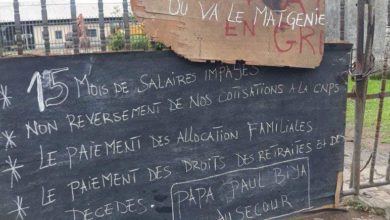 OU VA LE MATGENIE
EN GRE
15 MOIS DE SALAIRES IMPAYES
* NON REVERSEMENT DE NOS COTISATIONS A LA CNPS
* LE PAIEMENT DES ALLOCATION FAMILIALES
* LE PAIEMENT DES DROITS DES RETRAITES ET DES
DECEDES.
PAPA PAUL BIYA
AU SECOUR